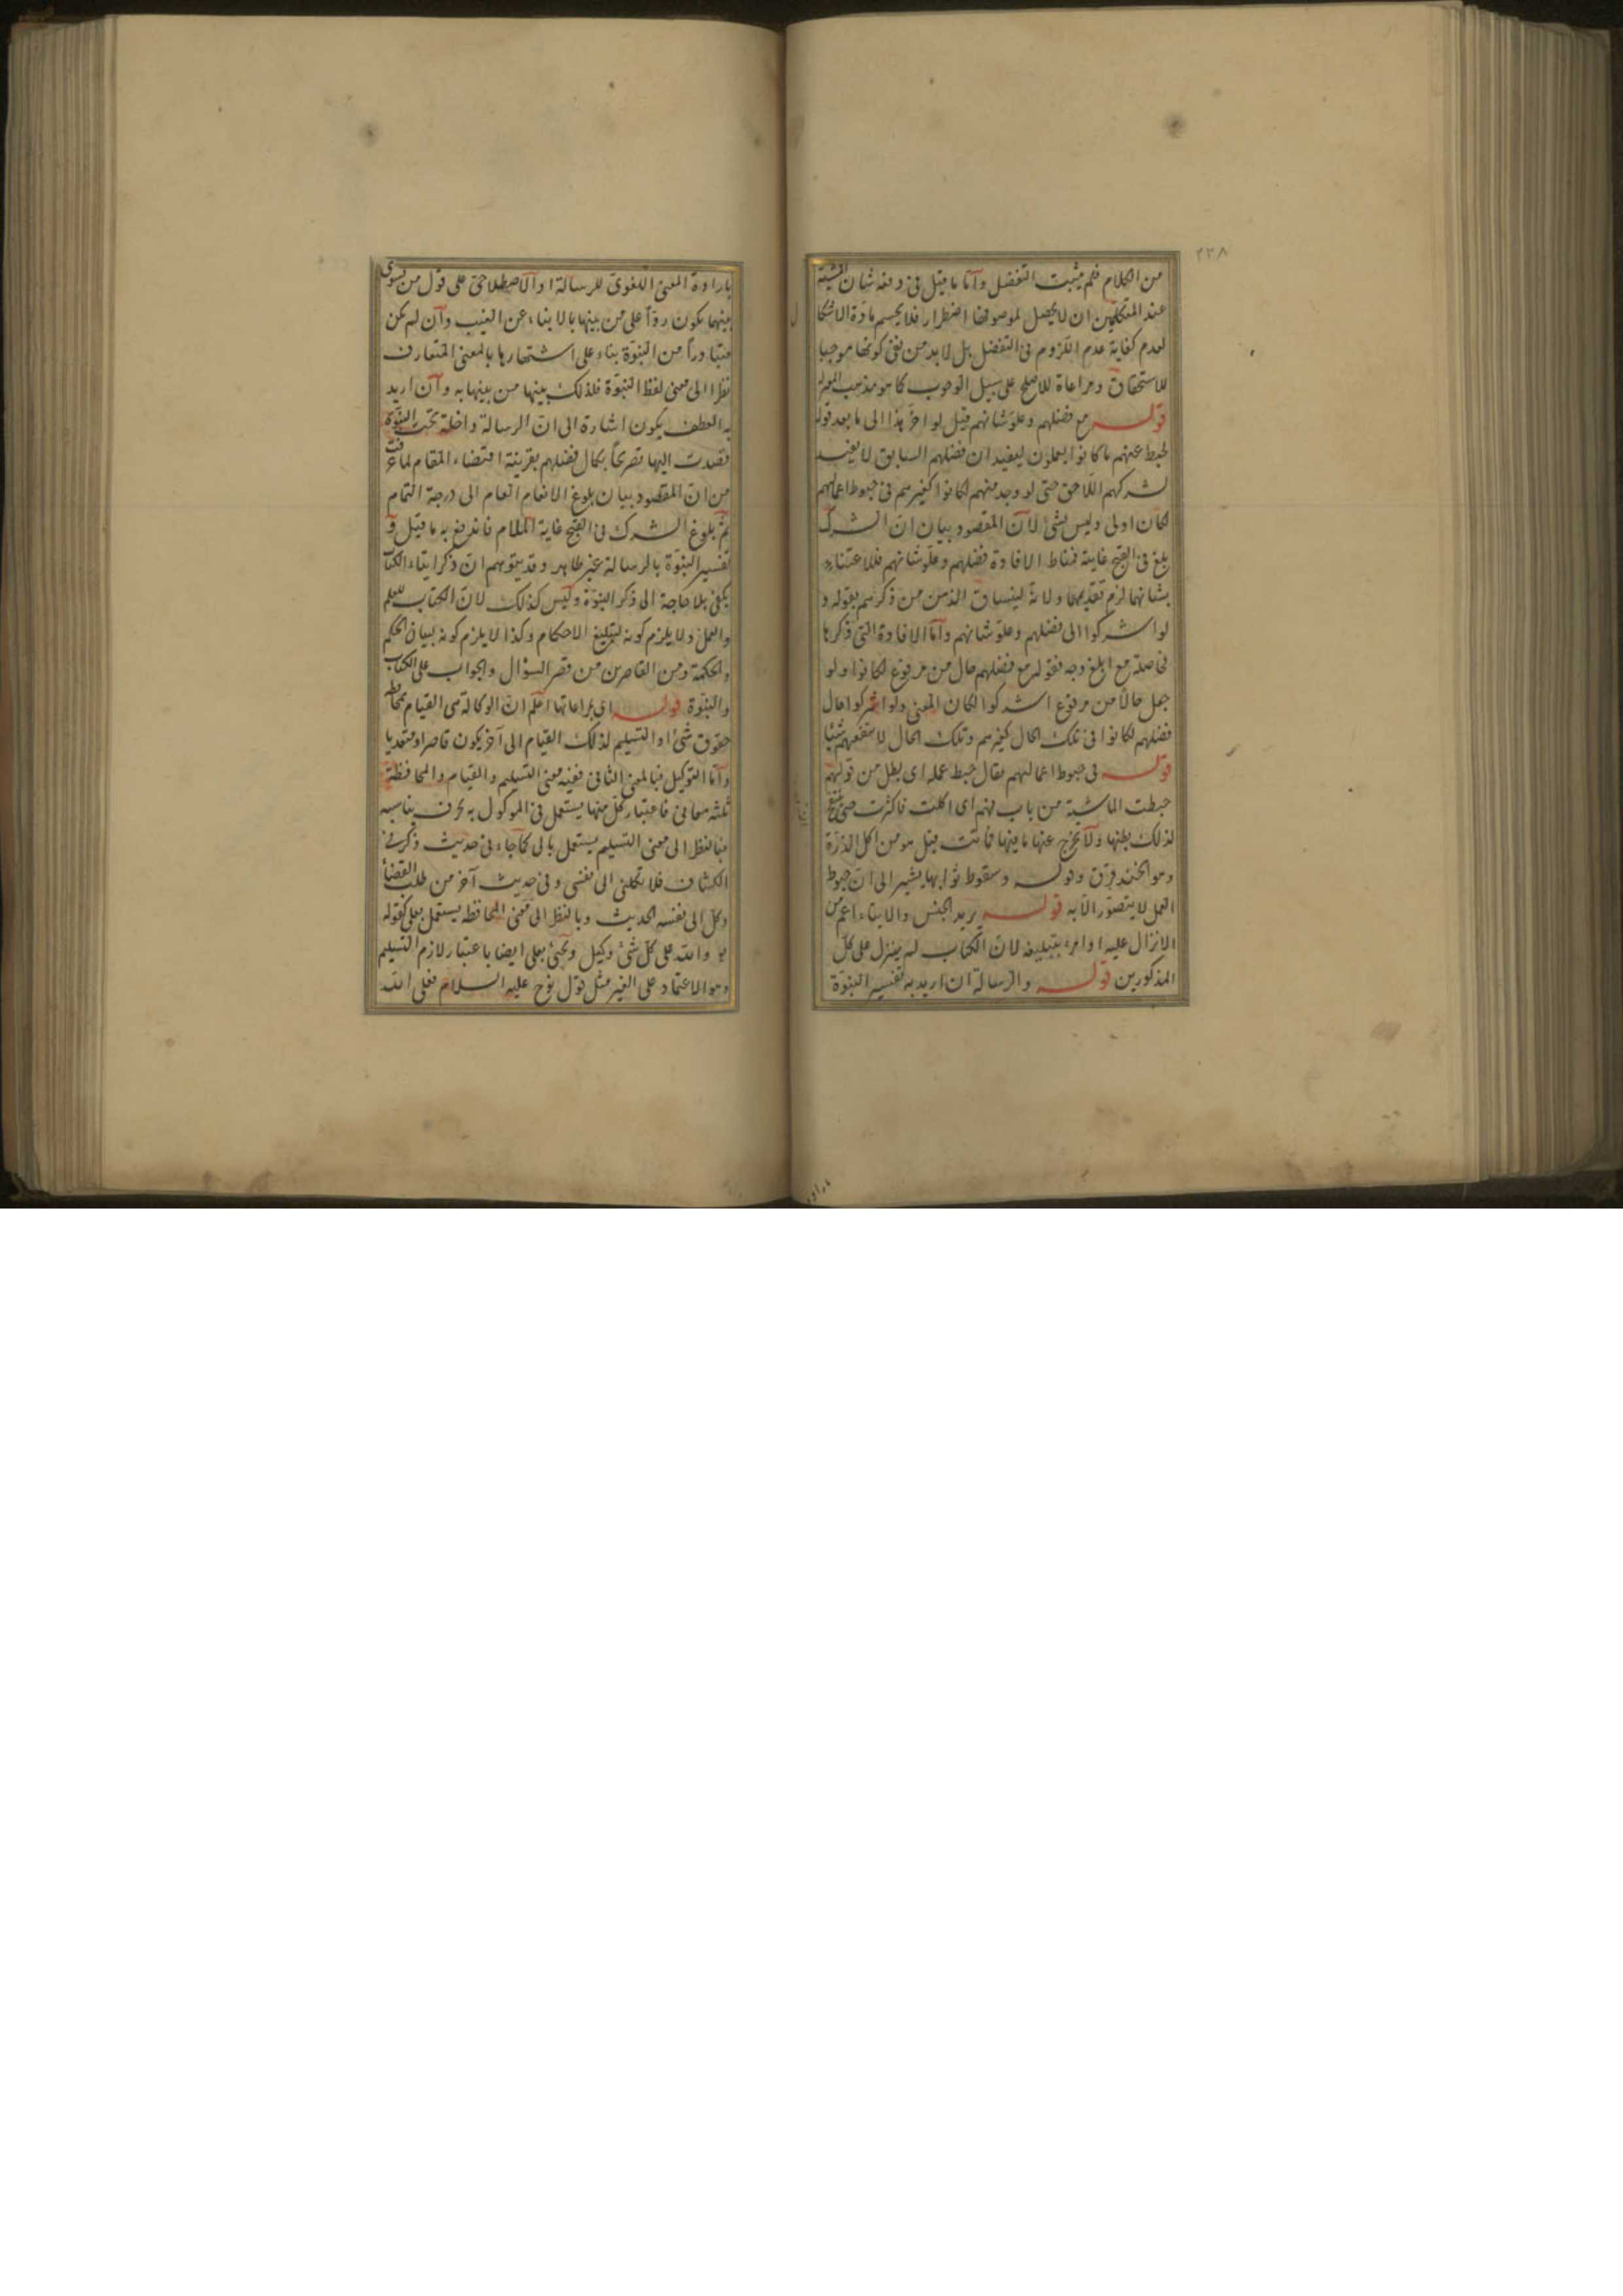 ٢٣٨
من الكلام فلم يثبت التفضل وأما ما قيل فى دفعه شان المشية
عند المتكلمين ان لا يحصل لموصوفها اضطرار فلا يحسم مادة الاشكا
لعدم كفاية عدم اللزوم فى التفضل بل لا بد من نفى كونها موجبا
للاستحقاق ومراعاة للاصلح على سبيل الوجوب كما هو مذهب المعتزله
قوله مع فضلهم وعلو شانهم قيل لو اخر هذا الى ما بعد قوله
لحبط عنهم ما كانوا يعملون ليفيد ان فضلهم السابق لا يفيد
لشركهم اللاحق حتى لو وجد منهم لكانوا كغيرهم فى حبوط اعمالهم
لكان اولى وليس بشئ لان المقصود بيان ان الشرك
بلغ فى القبح غايته فمناط الافادة فضلهم وعلو شانهم فللاعتناء
بشانهما لزم تقديمهما ولانه لينساق الذهن من ذكرهم بقوله و
لو اشركوا الى فضلهم وعلو شانهم وأما الافادة التى ذكرها
فحاصلة مع ابلغ وجه فقوله مع فضلهم حال من مرفوع لكانوا ولو
جعل حالا من مرفوع اشركوا لكان المعنى ولو اشركوا حال
فضلهم لكانوا فى تلك الحال كغيرهم وتلك الحال لا تنفعهم شيئا
قوله فى حبوط اعمالهم يقال حبط عمله اى بطل من قولهم
حبطت الماشية من باب فهم اى اكلت فاكثرت حتى تنتفخ
لذلك بطنها ولا يخرج عنها ما فيها فماتت قيل هو من اكل الذرة
وهو الحندقوق وقوله وسقوط ثوابها يشير الى ان حبوط
العمل لا يتصور الا به قوله يريد الجنس والايتاء اعم من
الانزال عليه او امره بتبليغه لان الكتاب لم ينزل على كل
المذكورين قوله والرسالة ان اريد به تفسير النبوة
بارادة المعنى اللغوى للرسالة او الاصطلاحى على قول من يسوى
بينهما يكون ردا على من بينها بالانباء عن الغيب وان لم يكن
متبادرا من النبوة بناء على اشتهارها بالمعنى المتعارف
نظرا الى معنى لفظ النبوة فلذلك بينها من بينها به وان اريد
به العطف يكون اشارة الى ان الرسالة داخلة تحت النبوة
قصدت اليها تصريحا بكمال فضلهم بقرينة اقتضاء المقام لما عرفت
من ان المقصود بيان بلوغ الانعام العام الى درجة التمام
ثم بلوغ الشرك فى القبح غاية الملام فاندفع به ما قيل و
تفسير النبوة بالرسالة غير ظاهر وقد يتوهم ان ذكر ايتاء الكتاب
يكفى بلا حاجة الى ذكر النبوة وليس كذلك لان الكتاب للعلم
والعمل ولا يلزم كونه لتبليغ الاحكام وكذا لا يلزم كونه لبيان الحكم
والحكمة ومن القاصرين من قصر السؤال والجواب على الكتاب
والنبوة قوله اى بمراعاتها اعلم ان الوكالة هى القيام بمحافظة
حقوق شئ او التسليم لذلك القيام الى آخر يكون قاصرا ومتعديا
وأما التوكيل فبالمعنى الثانى ففيه معنى التسليم والقيام والمحافظة
ثلثه معانى فاعتبار كل منها يستعمل فى الموكول به بحرف يناسبه
فبالنظر الى معنى التسليم يستعمل بالى كما جاء فى حديث ذكر فى
الكشاف فلا تكلنى الى نفسى وفى حديث آخر من طلب القضاء
وكل الى نفسه الحديث وبالنظر الى معنى المحافظه يستعمل بعلى كقوله
تع والله على كل شئ وكيل ويجئ بعلى ايضا باعتبار لازم التسليم
وهو الاعتماد على الغير مثل قول نوح عليه السلام فعلى الله
باراده